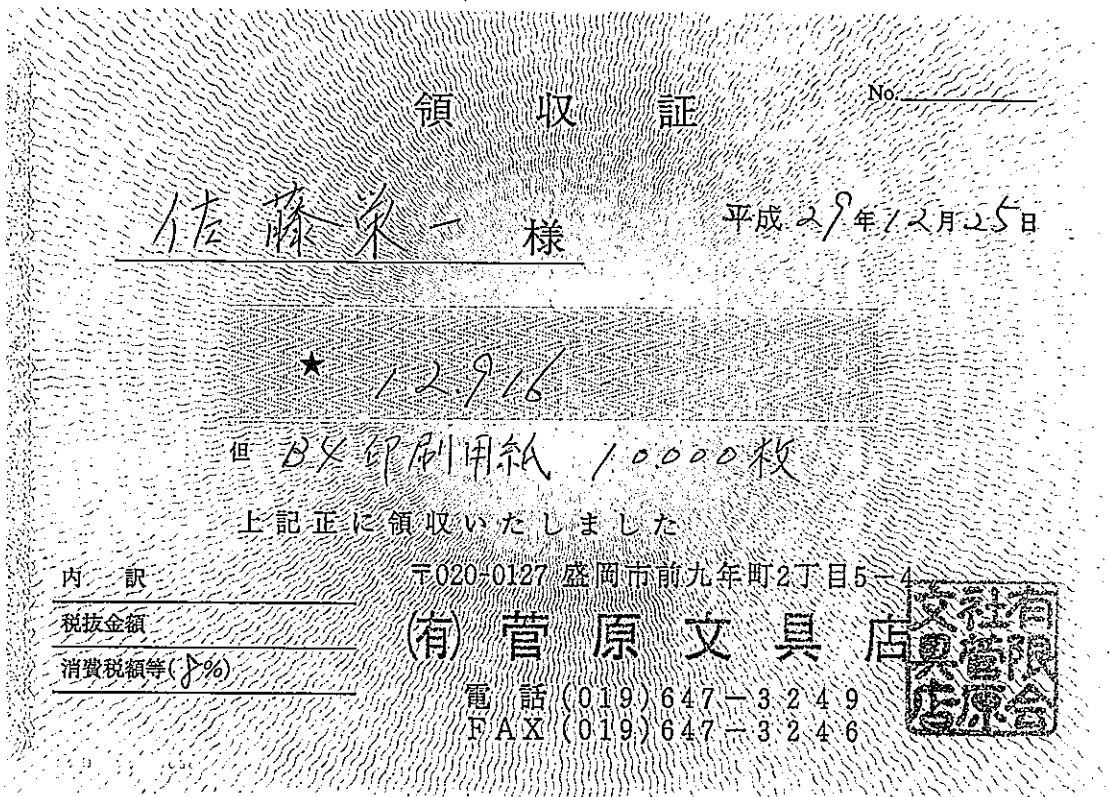 No.
領収証
佐藤栄一 様
平成29年12月25日
★ 12.916
但 B4 印刷用紙 10.000枚
上記正に領収いたしました
内訳
税抜金額
消費税額等(8%)
〒020-0127 盛岡市前九年町2丁目5-4
(有) 菅原文具店
電話(019)647-3249
FAX(019)647-3246
有限会社菅原文具店